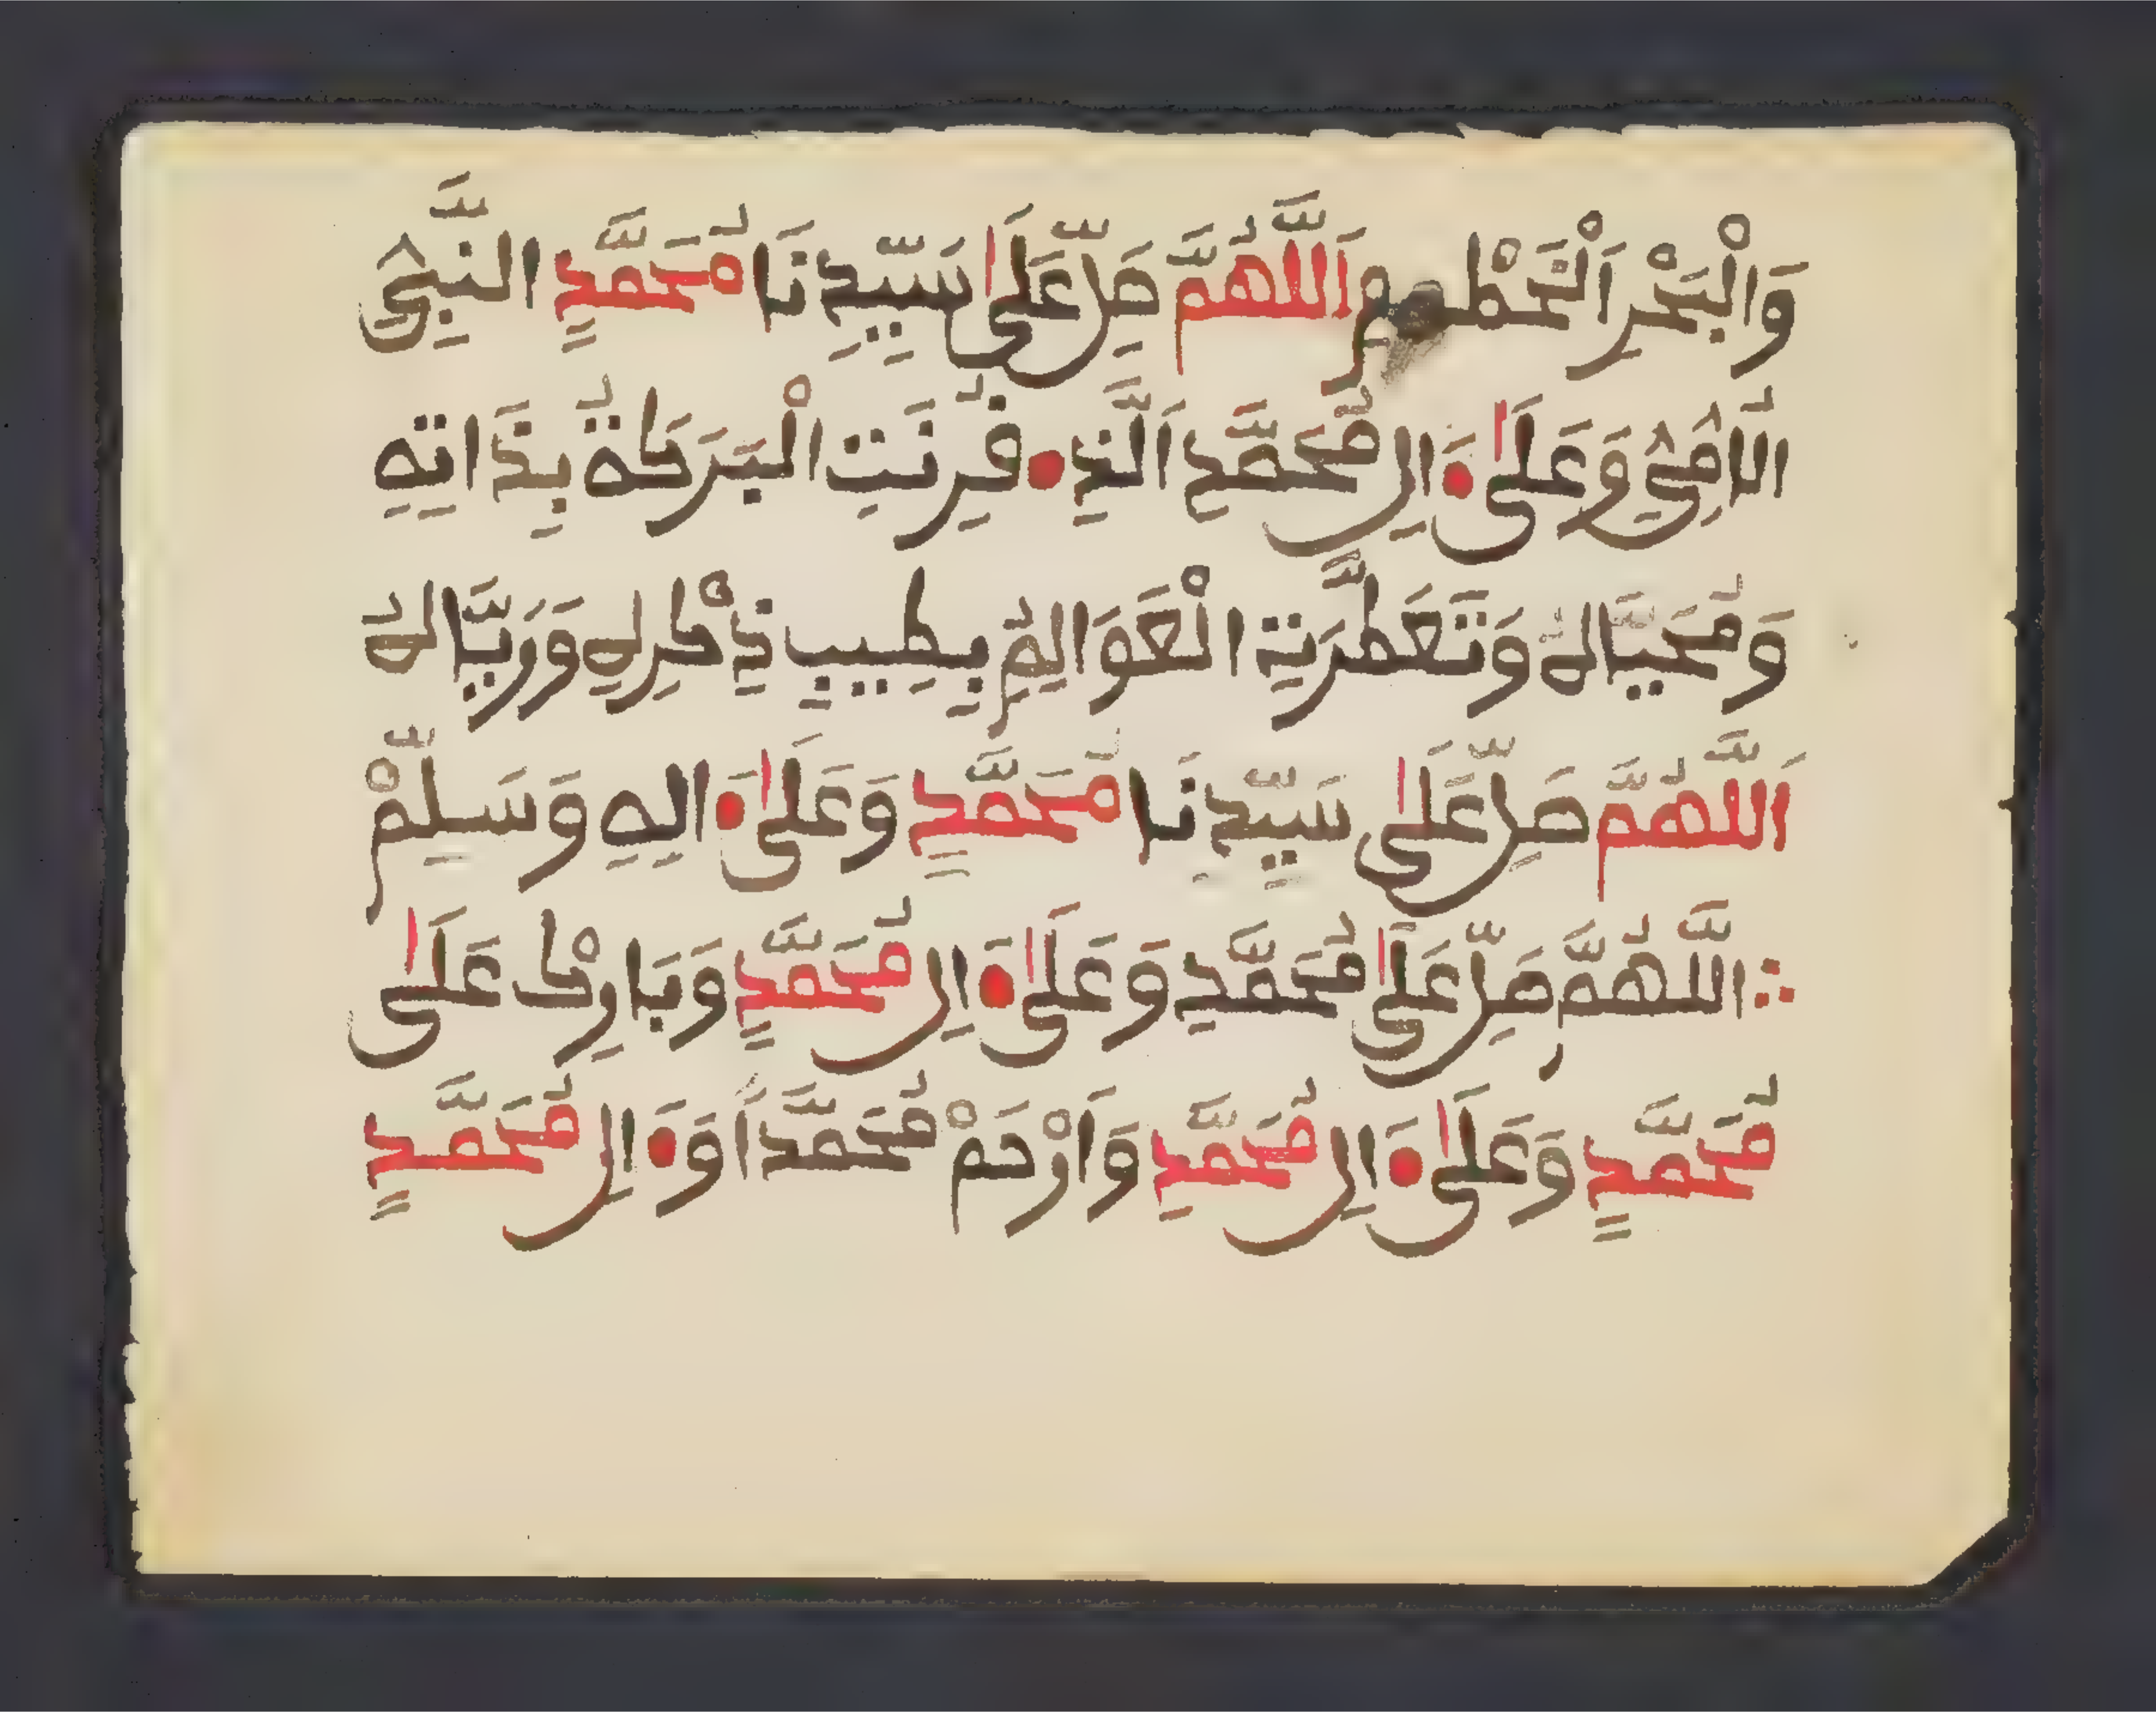 وَالْبَحْرِ الْخَطْمِمِ اَللَّهُمَّ صَلِّ عَلَىٰ سَيِّدِنَا مُحَمَّدٍ النَّبِيِّ
الْاُمِّيِّ وَعَلَىٰ ءَالِ مُحَمَّدِ اَلَّذِے فُرِنَتِ الْبَرَكَةُ بِذَاتِهِ
وَمُحَيَّاهُ وَتَعَطَّرَتِ الْعَوَالِمُ بِطِيبِ ذِكْرِهِ وَرَيَّاهُ
اَللَّهُمَّ صَلِّ عَلَىٰ سَيِّدِنَا مُحَمَّدٍ وَعَلَىٰ ءَالِهِ وَسَلِّمْ
اللَّهُمَّ صَلِّ عَلَىٰ مُحَمَّدٍ وَعَلَىٰ ءَالِ مُحَمَّدٍ وَبَارِكْ عَلَىٰ
مُحَمَّدٍ وَعَلَىٰ ءَالِ مُحَمَّدٍ وَارْحَمْ مُحَمَّداً وَءَالِ مُحَمَّدٍ